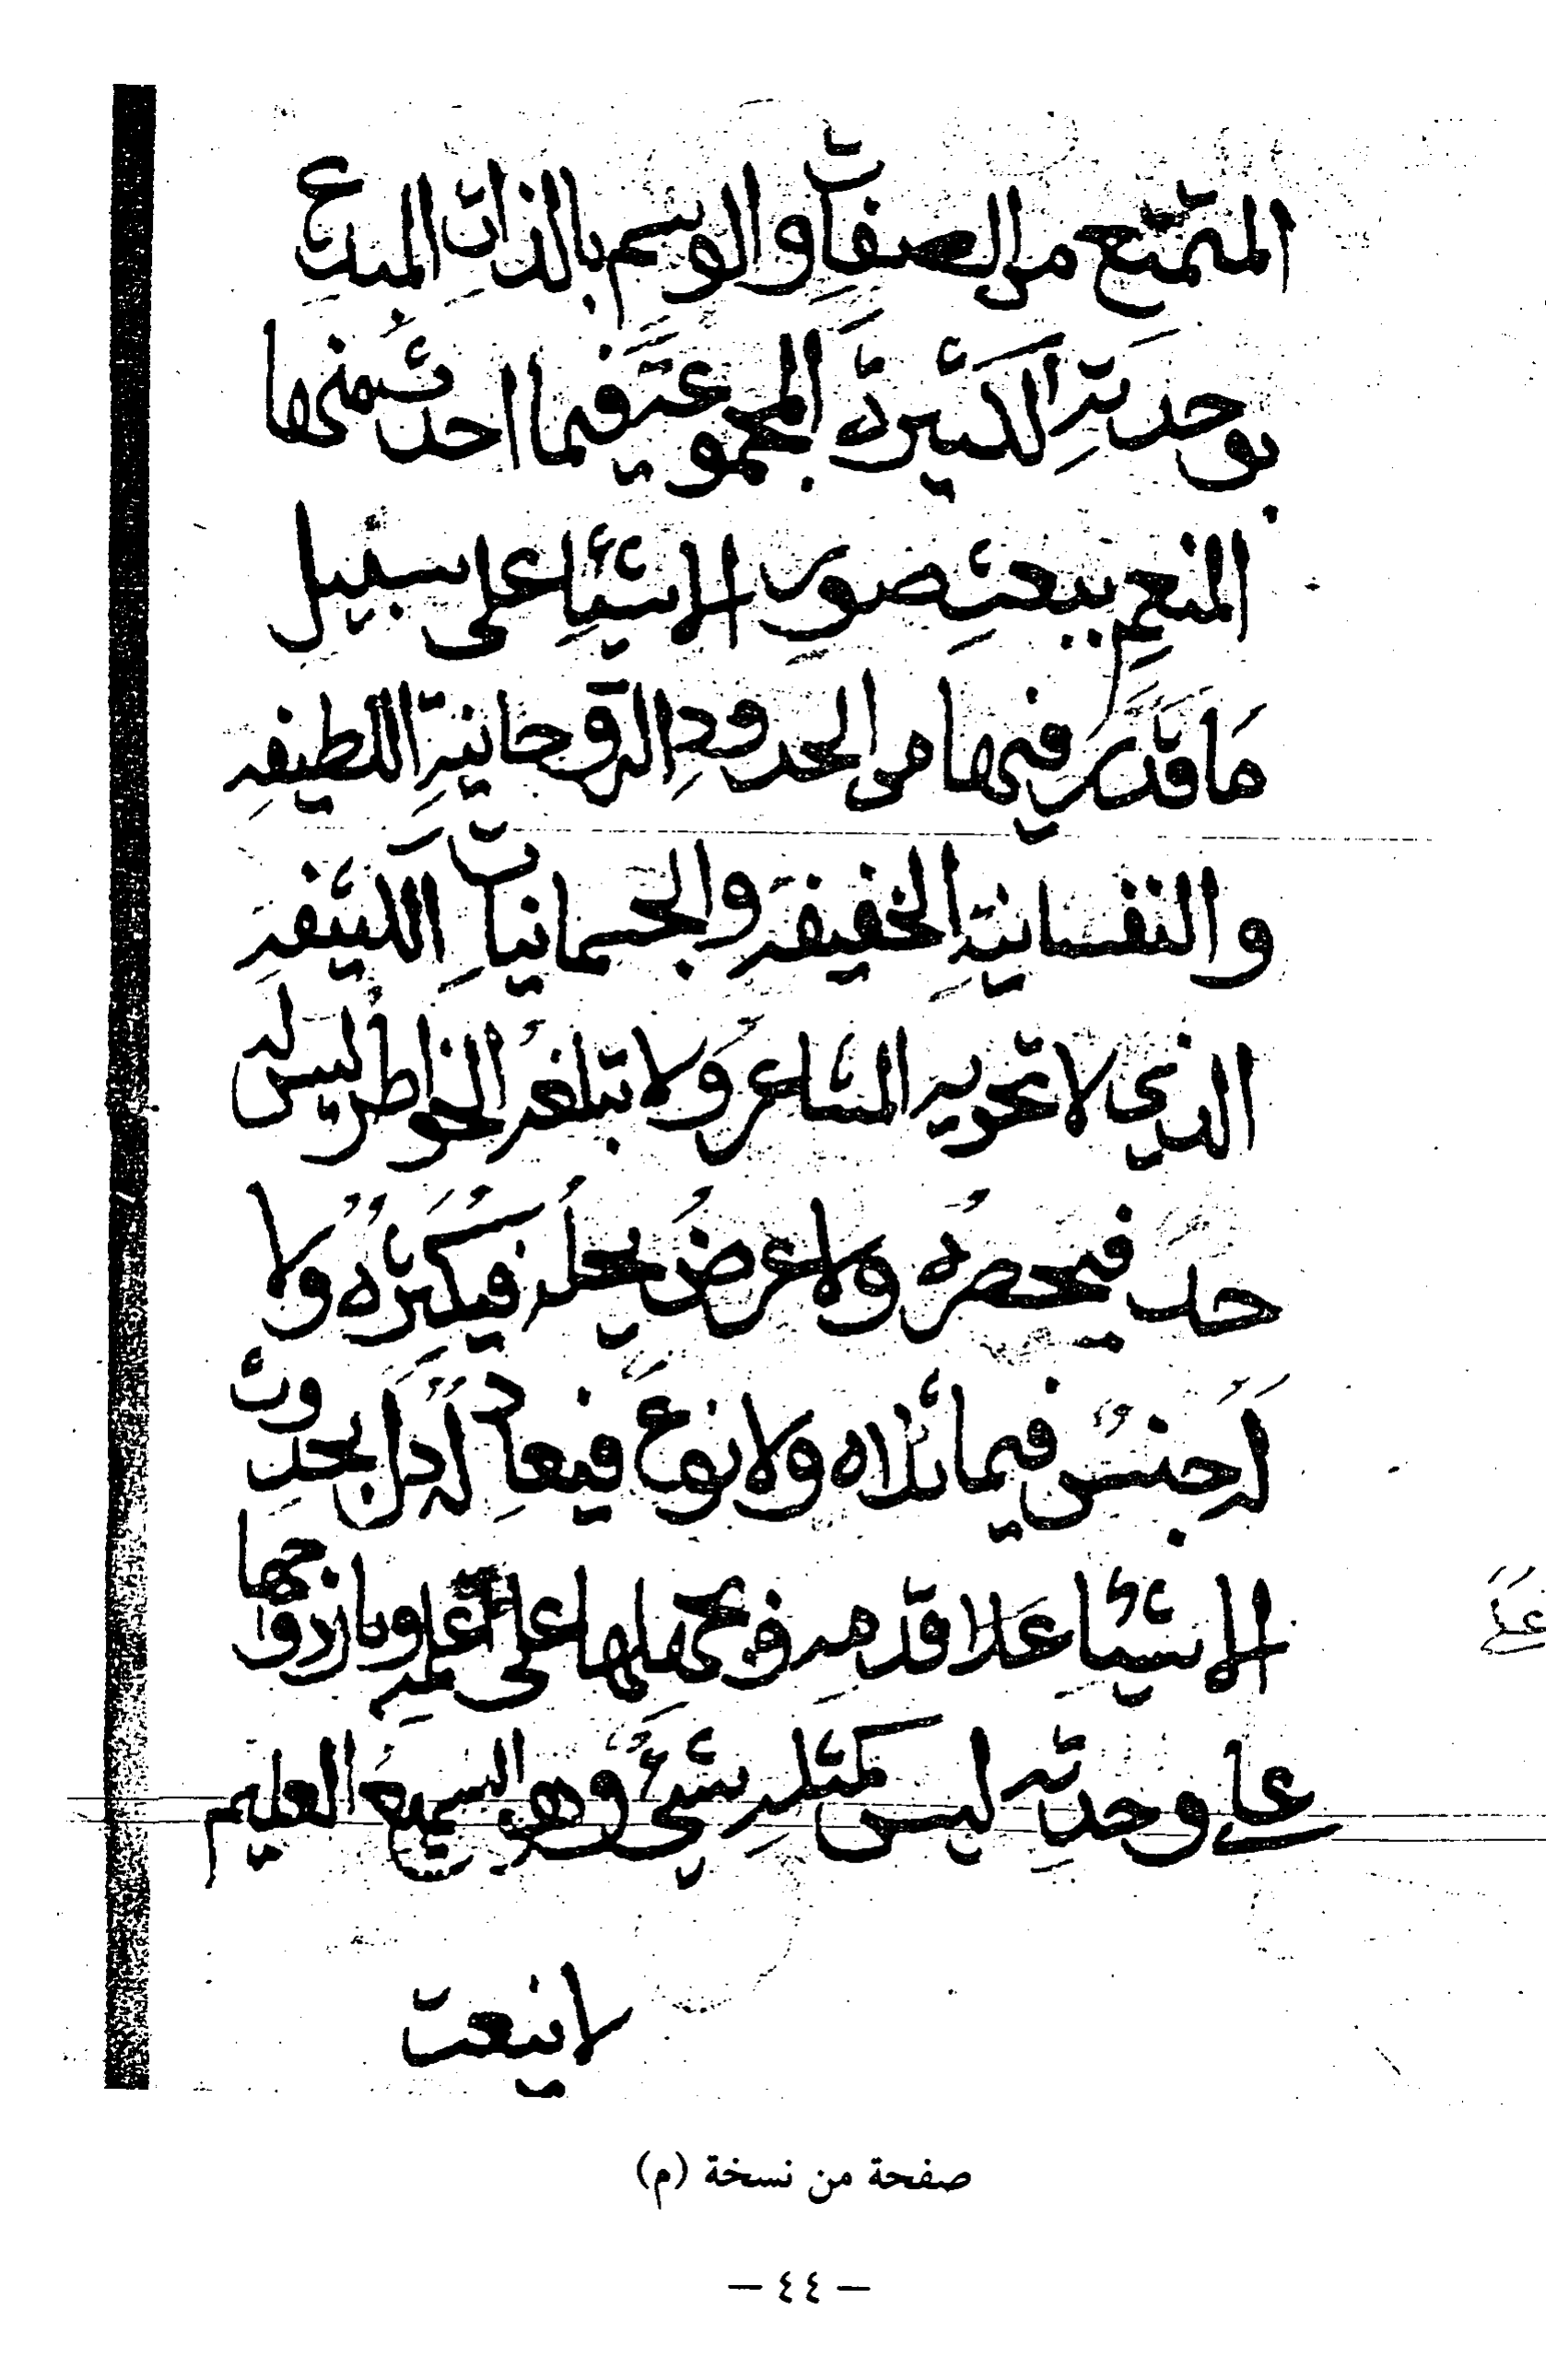 المتمتع من الصفات والوسم بالذات المبدع
بوحدتهِ الكثيرة المجموعة فيما احدث منها
المنعم ببعث صور الاشياء على سبيل
مَا قدَّرَ فيها من الحدودِ الروحانيةِ اللطيفه
والنفسانيةِ الخفيفة والجسمانياتِ الكثيفه
الذي لا تحويه المشاعر ولا تبلغه الخواطر ليس له
حد فيحصرهُ ولا عرضُ يحلهُ فيكثرهُ ولا
لَه جنسٌ فيما ثلاه ولا نوع فيعادله دل بحدوث
الاشياء علا قدمه وبجهلها على علمه وبازدواجها
على وحدته ليس كمثلهِ شيءٌ وهو السميع العليم
لا نبعت
صفحة من نسخة (م)
— ٤٤ —